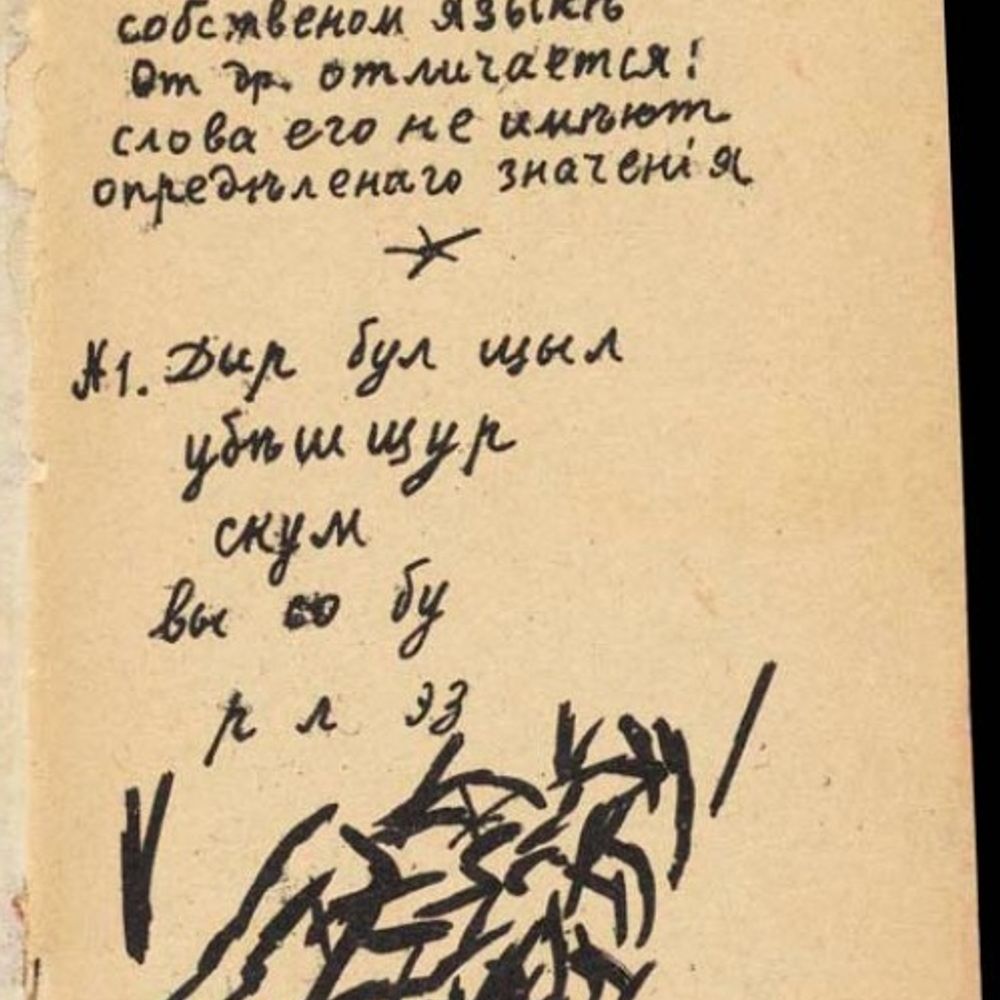 собственом языкѣ
От др. отличается:
слова его не имѣют
опредѣленаго значенія
№1. Дыр бул щыл
убѣшщур
скум
вы со бу
р л эз